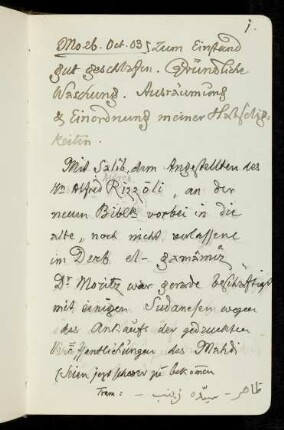 1.
Mo 26. Oct. 03 Zum Einstand
gut geschlafen. Gründliche
Waschung. Ausräumung
& Einordnung meiner Habselig-
keiten.
Mit Salib, dem Angestellten des
Hn Alfred Rizzoli, an der
neuen Biblk vorbei in die
alte, noch nicht verlassene
im Derb el-gamāmīz
Dr Moritz war gerade beschäftigt
mit einigen Sudanesen wegen
des Ankaufs der gedruckten
Veröffentlichungen des Mahdi
schwer zu bekommen
Tram: - ظاهر - سيده زينب